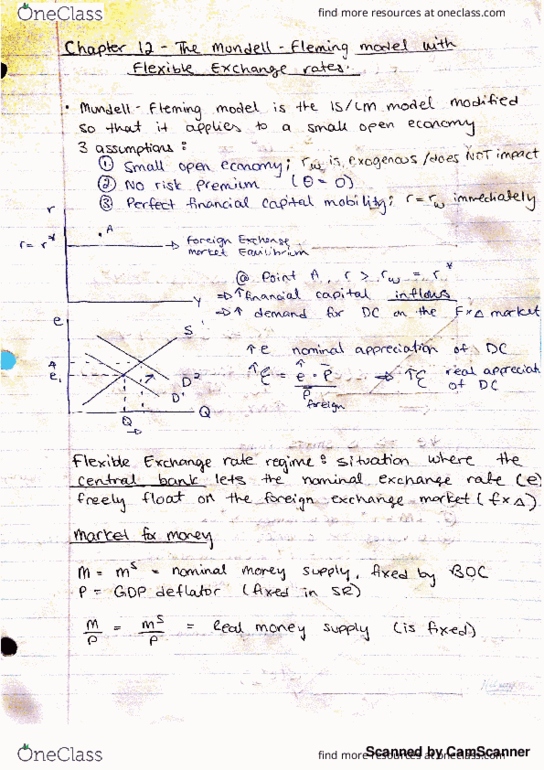 OneClass
find more resources at oneclass.com
Chapter 12 - The Mundell - Fleming model with
Flexible Exchange rates.
• Mundell - Fleming model is the IS/LM model modified
so that it applies to a small open economy
3 assumptions:
① Small open economy; rw is exogenous/does NOT impact
② No risk premium (θ = 0)
③ Perfect financial capital mobility; r = rw immediately
r
• A
r = r* → foreign Exchange
market Equilibrium
@ point A, r > rw = r*
Y
⇒ ↑ financial capital inflows
⇒ ↑ demand for DC on the FxΔ market
e
S
↑ e nominal appreciation of DC
e1
D²
D'
Q
Q
↑ε = e · P ⇒ ↑ε real appreciat
P of DC
foreign
Flexible Exchange rate regime: situation where the
central bank lets the nominal exchange rate (e)
freely float on the foreign exchange market (fxΔ).
market for money
M = mˢ = nominal money supply, fixed by BOC
P = GDP deflator (fixed in SR)
M/P = mˢ/P = Real money supply (is fixed)
OneClass
find more resources at oneclass.com
Scanned by CamScanner